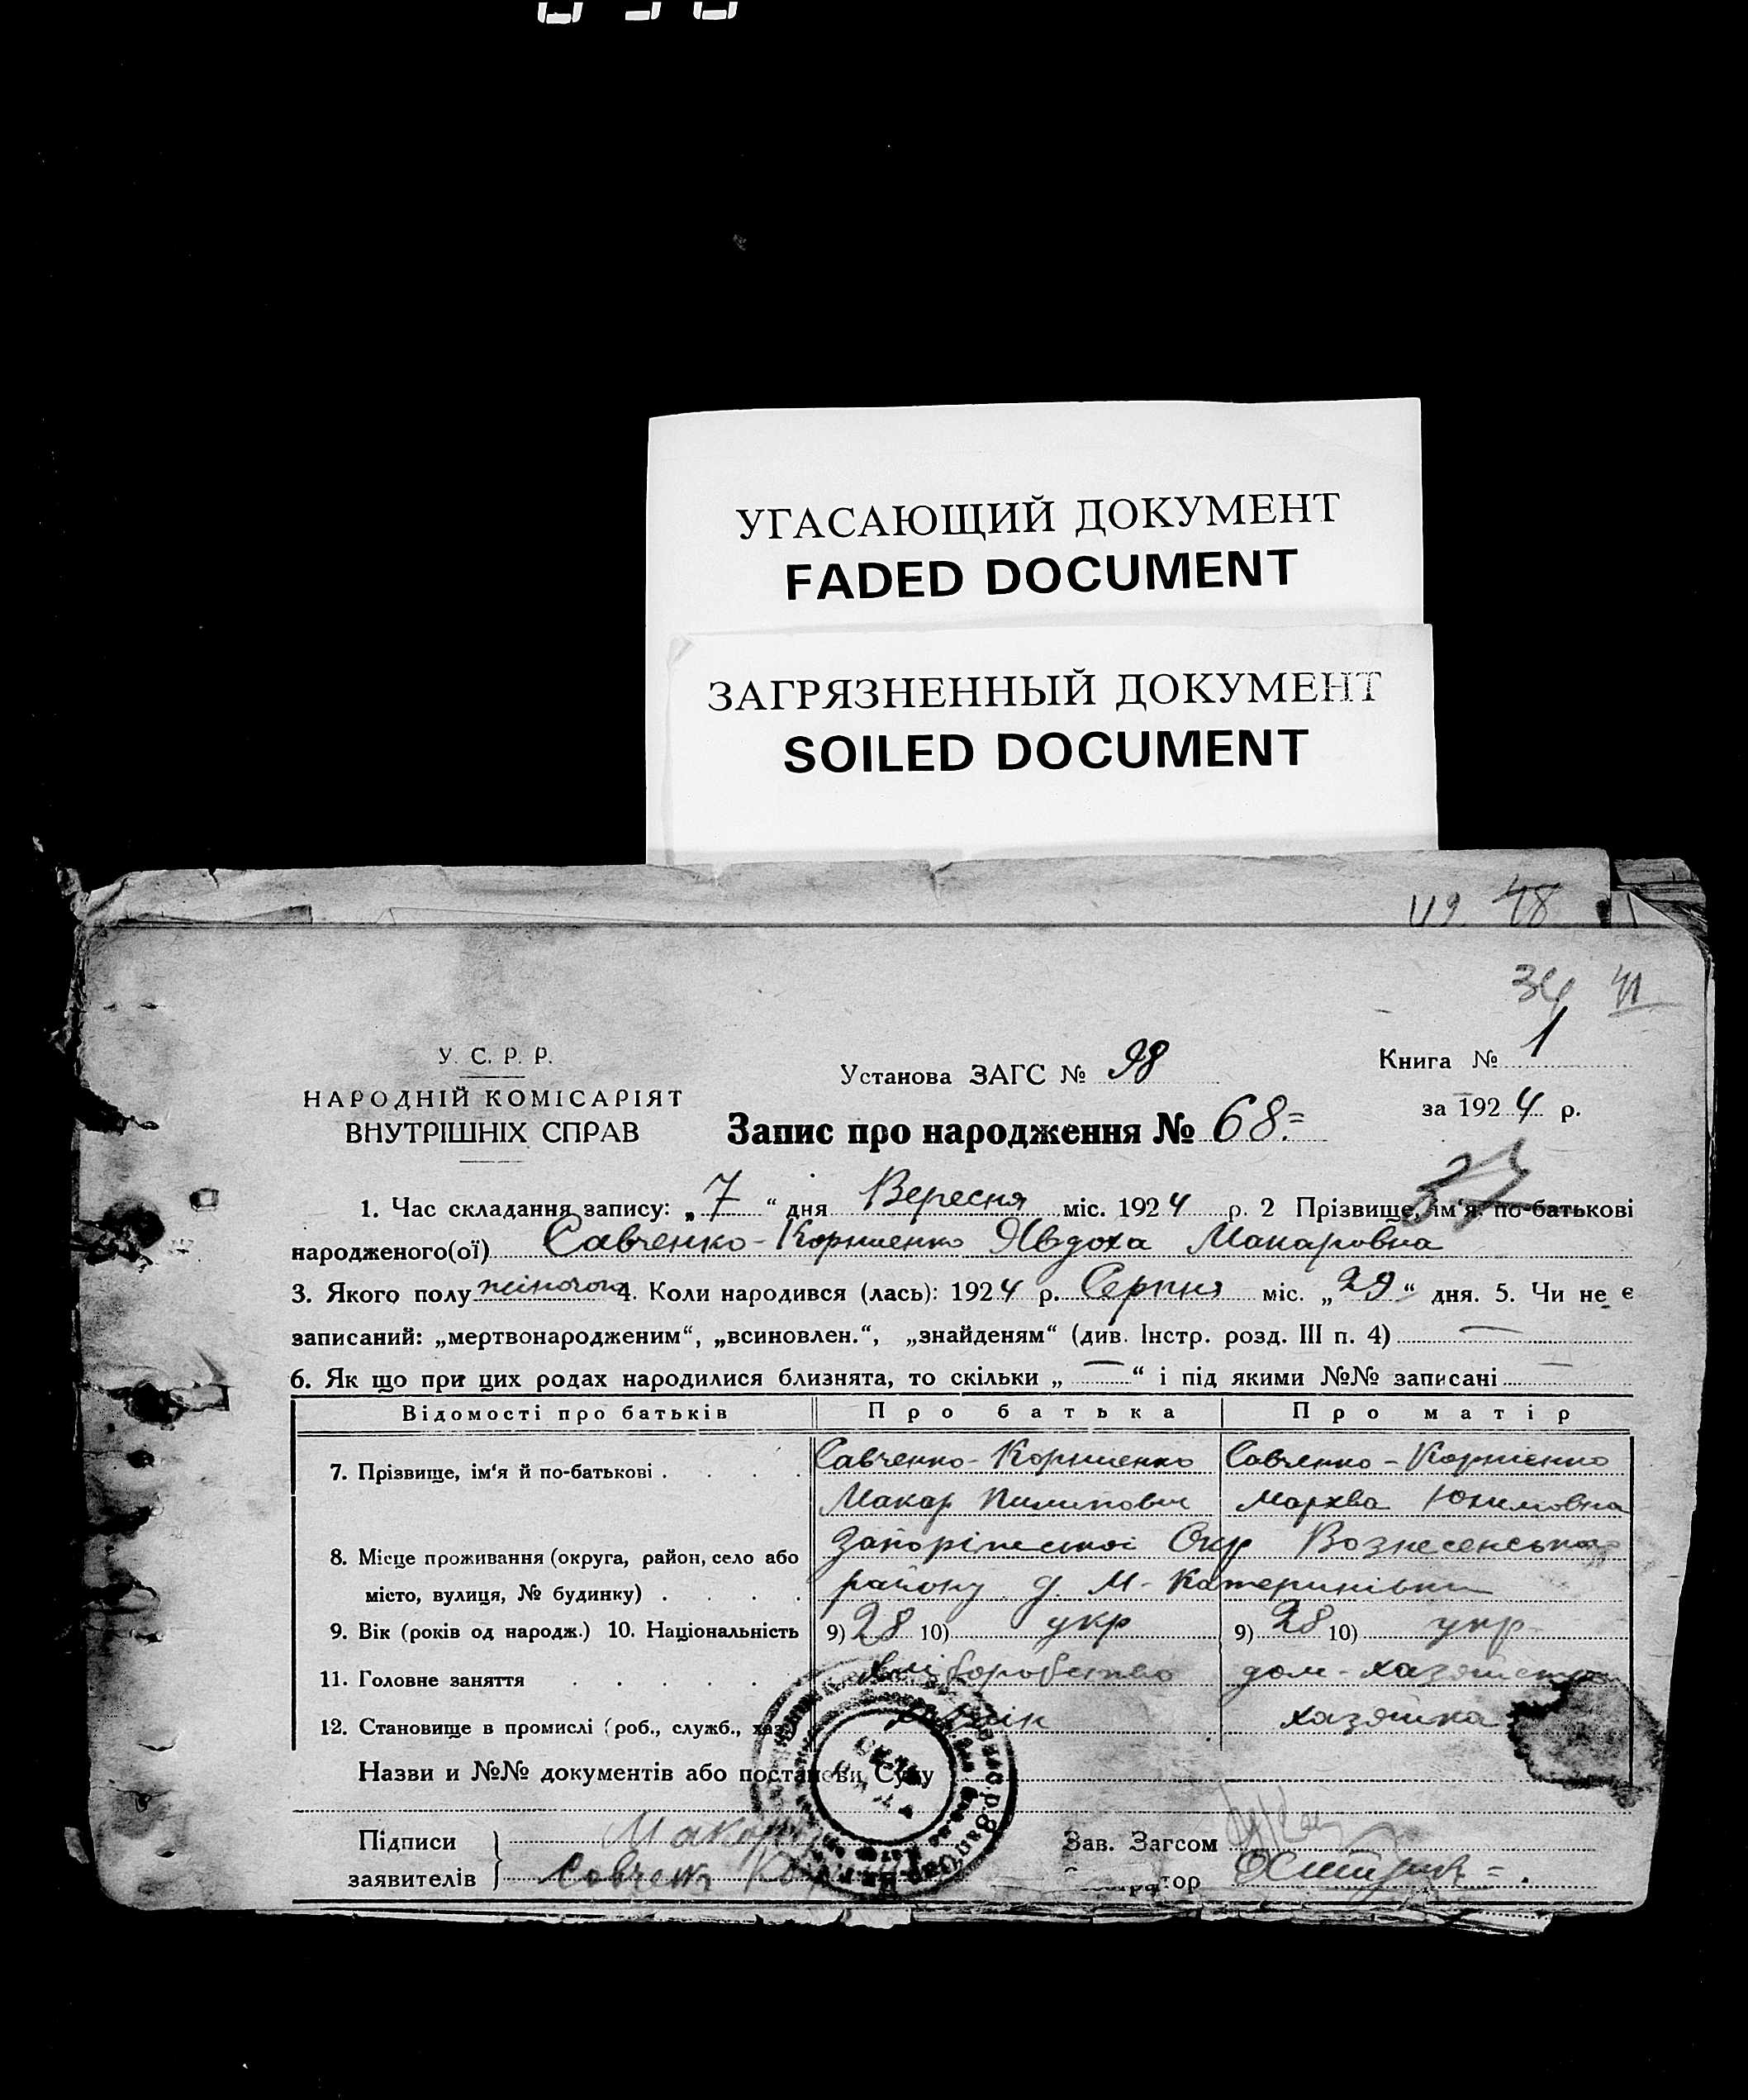 УГАСАЮЩИЙ ДОКУМЕНТ
FADED DOCUMENT
ЗАГРЯЗНЕННЫЙ ДОКУМЕНТ
SOILED DOCUMENT
49. 48
34 41
У. С. Р. Р.
НАРОДНІЙ КОМІСАРІЯТ
ВНУТРІШНІХ СПРАВ
Установа ЗАГС № 98
Книга № 1
за 1924 р.
Запис про народження № 68.=
37
1. Час складання запису: „7“ дня Вересня міс. 1924 р. 2 Прізвище, ім'я, по-батькові
народженого(ої) Савченко-Корниенко Явдоха Макаровна
3. Якого полу жіночого 4. Коли народився (лась): 1924 р. Серпня міс. „29“ дня. 5. Чи не є
записаний: „мертвонародженим“, „всиновлен.“, „знайденям“ (див. Інстр. розд. III п. 4) —
6. Як що при цих родах народилися близнята, то скільки „—“ і під якими №№ записані —
Відомості про батьків Про батька Про матір
7. Прізвище, ім'я й по-батькові . . . . Савченко-Корниенко Савченко-Корниенко
Макар Пилипович Мархва Юхимовна
8. Місце проживання (округа, район, село або Запоріжськоі Окр Вознесенського
місто, вулиця, № будинку) . . . . району д. М-Катеринівки
9. Вік (років од народж.) 10. Національність 9) 28 10) укр 9) 28 10) укр
11. Головне заняття . . . . . хліборобство дом-хазяйство
12. Становище в промислі (роб., служб., хаз. хазяйка
Назви и №№ документів або постанови Суду
Підписи заявителів Макар
Савченк Кор
Зав. Загсом
тор